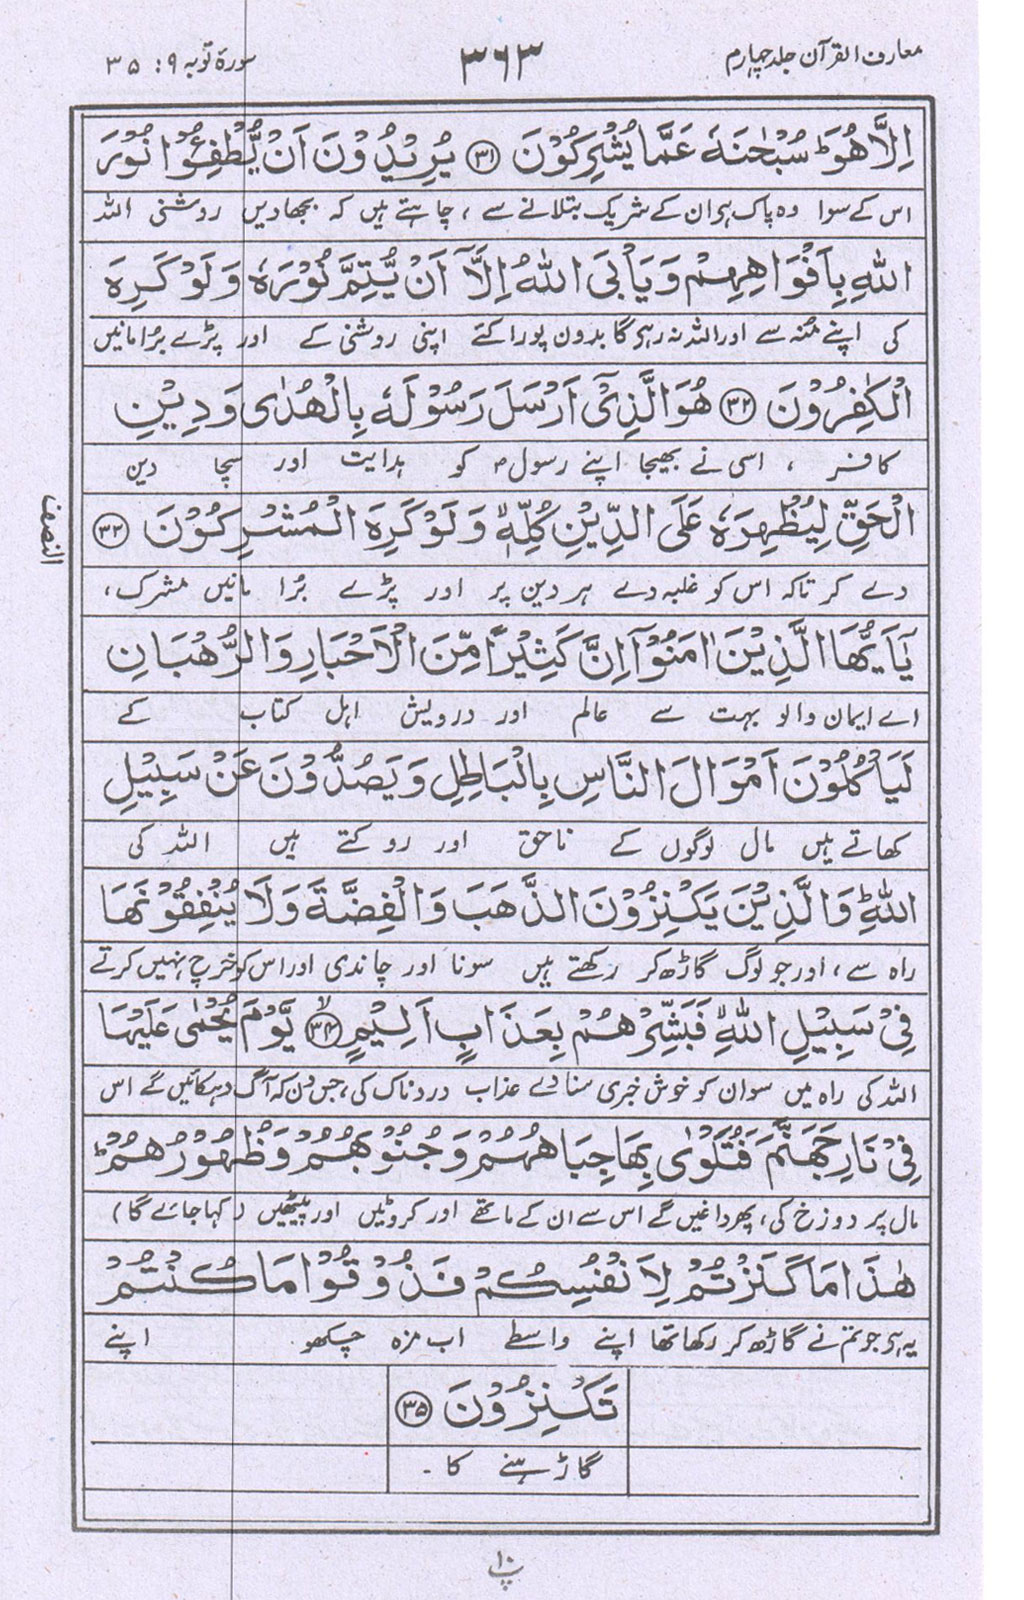 معارف القرآن جلد چہارم ۳۶۳ سورۃ توبہ ۹ : ۳۵
اِلَّا هُوَ ؕ سُبْحٰنَهٗ عَمَّا يُشْرِكُوْنَ ﴿۳۱﴾ يُرِيْدُوْنَ اَنْ يُّطْفِـُٔوْا نُوْرَ
اس کے سوا وہ پاک ہے ان کے شریک بتلانے سے ، چاہتے ہیں کہ بجھادیں روشنی اللہ
اللّٰهِ بِاَفْوَاهِهِمْ وَيَاْبَى اللّٰهُ اِلَّآ اَنْ يُّتِمَّ نُوْرَهٗ وَلَوْ كَرِهَ
کی اپنے منہ سے اور اللہ نہ رہے گا بدون پورا کئے اپنی روشنی کے اور پڑے برا مانیں
الْكٰفِرُوْنَ ﴿۳۲﴾ هُوَ الَّذِيْٓ اَرْسَلَ رَسُوْلَهٗ بِالْهُدٰى وَدِيْنِ
کافر ، اسی نے بھیجا اپنے رسولؐ کو ہدایت اور سچا دین
الْحَقِّ لِيُظْهِرَهٗ عَلَى الدِّيْنِ كُلِّهٖ ۙ وَلَوْ كَرِهَ الْمُشْرِكُوْنَ ﴿۳۳﴾
النصف
دے کر تاکہ اس کو غلبہ دے ہر دین پر اور پڑے برا مانیں مشرک ،
يٰٓاَيُّهَا الَّذِيْنَ اٰمَنُوْٓا اِنَّ كَثِيْرًا مِّنَ الْاَحْبَارِ وَالرُّهْبَانِ
اے ایمان والو بہت سے عالم اور درویش اہل کتاب کے
لَيَاْكُلُوْنَ اَمْوَالَ النَّاسِ بِالْبَاطِلِ وَيَصُدُّوْنَ عَنْ سَبِيْلِ
کھاتے ہیں مال لوگوں کے ناحق اور روکتے ہیں اللہ کی
اللّٰهِ ؕ وَالَّذِيْنَ يَكْنِزُوْنَ الذَّهَبَ وَالْفِضَّةَ وَلَا يُنْفِقُوْنَهَا
راہ سے ، اور جو لوگ گاڑھ کر رکھتے ہیں سونا اور چاندی اور اس کو خرچ نہیں کرتے
فِيْ سَبِيْلِ اللّٰهِ ۙ فَبَشِّرْهُمْ بِعَذَابٍ اَلِيْمٍ ﴿۳۴﴾ ۙ يَّوْمَ يُحْمٰى عَلَيْهَا
اللہ کی راہ میں سو ان کو خوش خبری سنا دے عذاب دردناک کی ، جس دن کہ آگ دہکائیں گے اس
فِيْ نَارِ جَهَنَّمَ فَتُكْوٰى بِهَا جِبَاهُهُمْ وَجُنُوْبُهُمْ وَظُهُوْرُهُمْ ؕ
مال پر دوزخ کی ، پھر داغیں گے اس سے ان کے ماتھے اور کروٹیں اور پیٹھیں ( کہا جائے گا )
هٰذَا مَا كَنَزْتُمْ لِاَنْفُسِكُمْ فَذُوْقُوْا مَا كُنْتُمْ
یہ ہے جو تم نے گاڑھ کر رکھا تھا اپنے واسطے اب مزہ چکھو اپنے
تَكْنِزُوْنَ ﴿۳۵﴾
گاڑہنے کا ۔